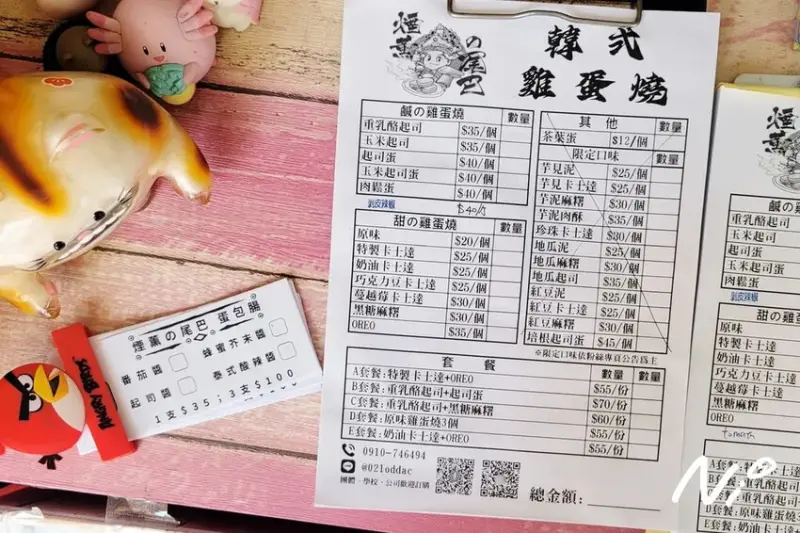 煙薰の尾巴
韓式
雞蛋燒
鹹の雞蛋燒 數量
重乳酪起司 $35/個
玉米起司 $35/個
起司蛋 $40/個
玉米起司蛋 $40/個
肉鬆蛋 $40/個
剝皮辣椒 $40/个
甜の雞蛋燒 數量
原味 $20/個
特製卡士達 $25/個
奶油卡士達 $25/個
巧克力豆卡士達 $25/個
蔓越莓卡士達 $30/個
黑糖麻糬 $30/個
OREO $35/個
其他 數量
茶葉蛋 $12/個
限定口味 數量
芋見泥 $25/個
芋見卡士達 $25/個
芋泥麻糬 $30/個
芋泥肉酥 $35/個
珍珠卡士達 $30/個
地瓜泥 $25/個
地瓜麻糬 $30/個
地瓜起司 $35/個
紅豆泥 $25/個
紅豆卡士達 $25/個
紅豆麻糬 $30/個
培根起司蛋 $45/個
※限定口味依粉絲專頁公告為主
套餐 數量
A套餐:特製卡士達+OREO $55/份
B套餐:重乳酪起司+起司蛋 $70/份
C套餐:重乳酪起司+黑糖麻糬 $60/份
D套餐:原味雞蛋燒3個 $55/份
E套餐:奶油卡士達+OREO $55/份
0910-746494
@021oddac
團體、學校、公司歡迎訂購
總金額:
煙薰の尾巴 蛋包腸
番茄醬 蜂蜜芥末醬
起司醬 泰式酸辣醬
1支$35;3支$100
ANGRY BIRDS
煙薰
鹹の雞
重乳酪起司
玉米起司
起司蛋
玉米起司蛋
肉鬆蛋
剝皮辣椒
甜の雞
原味
特製卡士達
奶油卡士達
巧克力豆卡士達
蔓越莓卡士達
黑糖麻糬
OREO
A套餐:特製卡士
B套餐:重乳酪起
C套餐:重乳酪起
D套餐:原味雞蛋燒
E套餐:奶油卡士達